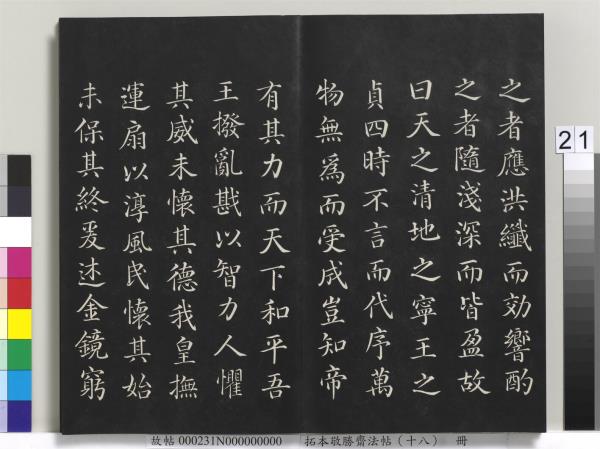 之者應洪纖而効響酌
之者隨淺深而皆盈故
曰天之清地之寧王之
貞四時不言而代序萬
物無為而受成豈知帝
有其力而天下和平吾
王撥亂戡以智力人懼
其威未懷其德我皇撫
運扇以淳風民懷其始
未保其終爰述金鏡窮
21
故帖 000231N000000000 拓本敬勝齋法帖（十八） 冊